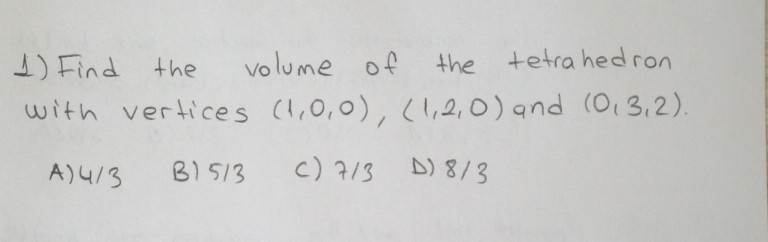 1) Find the volume of the tetrahedron
with vertices (1,0,0), (1,2,0) and (0,3,2).
A) 4/3 B) 5/3 C) 7/3 D) 8/3